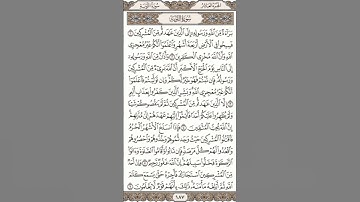 الجزء العاشر سورة التوبة
سورة التوبة
بَرَآءَةٌ مِّنَ ٱللَّهِ وَرَسُولِهِۦٓ إِلَى ٱلَّذِينَ عَٰهَدتُّم مِّنَ ٱلْمُشْرِكِينَ ١
فَسِيحُوا۟ فِى ٱلْأَرْضِ أَرْبَعَةَ أَشْهُرٍ وَٱعْلَمُوٓا۟ أَنَّكُمْ غَيْرُ مُعْجِزِى
ٱللَّهِ وَأَنَّ ٱللَّهَ مُخْزِى ٱلْكَٰفِرِينَ ٢ وَأَذَٰنٌ مِّنَ ٱللَّهِ وَرَسُولِهِۦٓ
إِلَى ٱلنَّاسِ يَوْمَ ٱلْحَجِّ ٱلْأَكْبَرِ أَنَّ ٱللَّهَ بَرِىٓءٌ مِّنَ ٱلْمُشْرِكِينَ
وَرَسُولُهُۥ فَإِن تُبْتُمْ فَهُوَ خَيْرٌ لَّكُمْ وَإِن تَوَلَّيْتُمْ فَٱعْلَمُوٓا۟ أَنَّكُمْ
غَيْرُ مُعْجِزِى ٱللَّهِ وَبَشِّرِ ٱلَّذِينَ كَفَرُوا۟ بِعَذَابٍ أَلِيمٍ ٣
إِلَّا ٱلَّذِينَ عَٰهَدتُّم مِّنَ ٱلْمُشْرِكِينَ ثُمَّ لَمْ يَنقُصُوكُمْ شَيْـًٔا
وَلَمْ يُظَٰهِرُوا۟ عَلَيْكُمْ أَحَدًا فَأَتِمُّوٓا۟ إِلَيْهِمْ عَهْدَهُمْ إِلَىٰ مُدَّتِهِمْ
إِنَّ ٱللَّهَ يُحِبُّ ٱلْمُتَّقِينَ ٤ فَإِذَا ٱنسَلَخَ ٱلْأَشْهُرُ ٱلْحُرُمُ
فَٱقْتُلُوا۟ ٱلْمُشْرِكِينَ حَيْثُ وَجَدتُّمُوهُمْ وَخُذُوهُمْ وَٱحْصُرُوهُمْ
وَٱقْعُدُوا۟ لَهُمْ كُلَّ مَرْصَدٍ فَإِن تَابُوا۟ وَأَقَامُوا۟ ٱلصَّلَوٰةَ وَءَاتَوُا۟
ٱلزَّكَوٰةَ فَخَلُّوا۟ سَبِيلَهُمْ إِنَّ ٱللَّهَ غَفُورٌ رَّحِيمٌ ٥ وَإِنْ أَحَدٌ
مِّنَ ٱلْمُشْرِكِينَ ٱسْتَجَارَكَ فَأَجِرْهُ حَتَّىٰ يَسْمَعَ كَلَٰمَ
ٱللَّهِ ثُمَّ أَبْلِغْهُ مَأْمَنَهُۥ ذَٰلِكَ بِأَنَّهُمْ قَوْمٌ لَّا يَعْلَمُونَ ٦
١٨٧